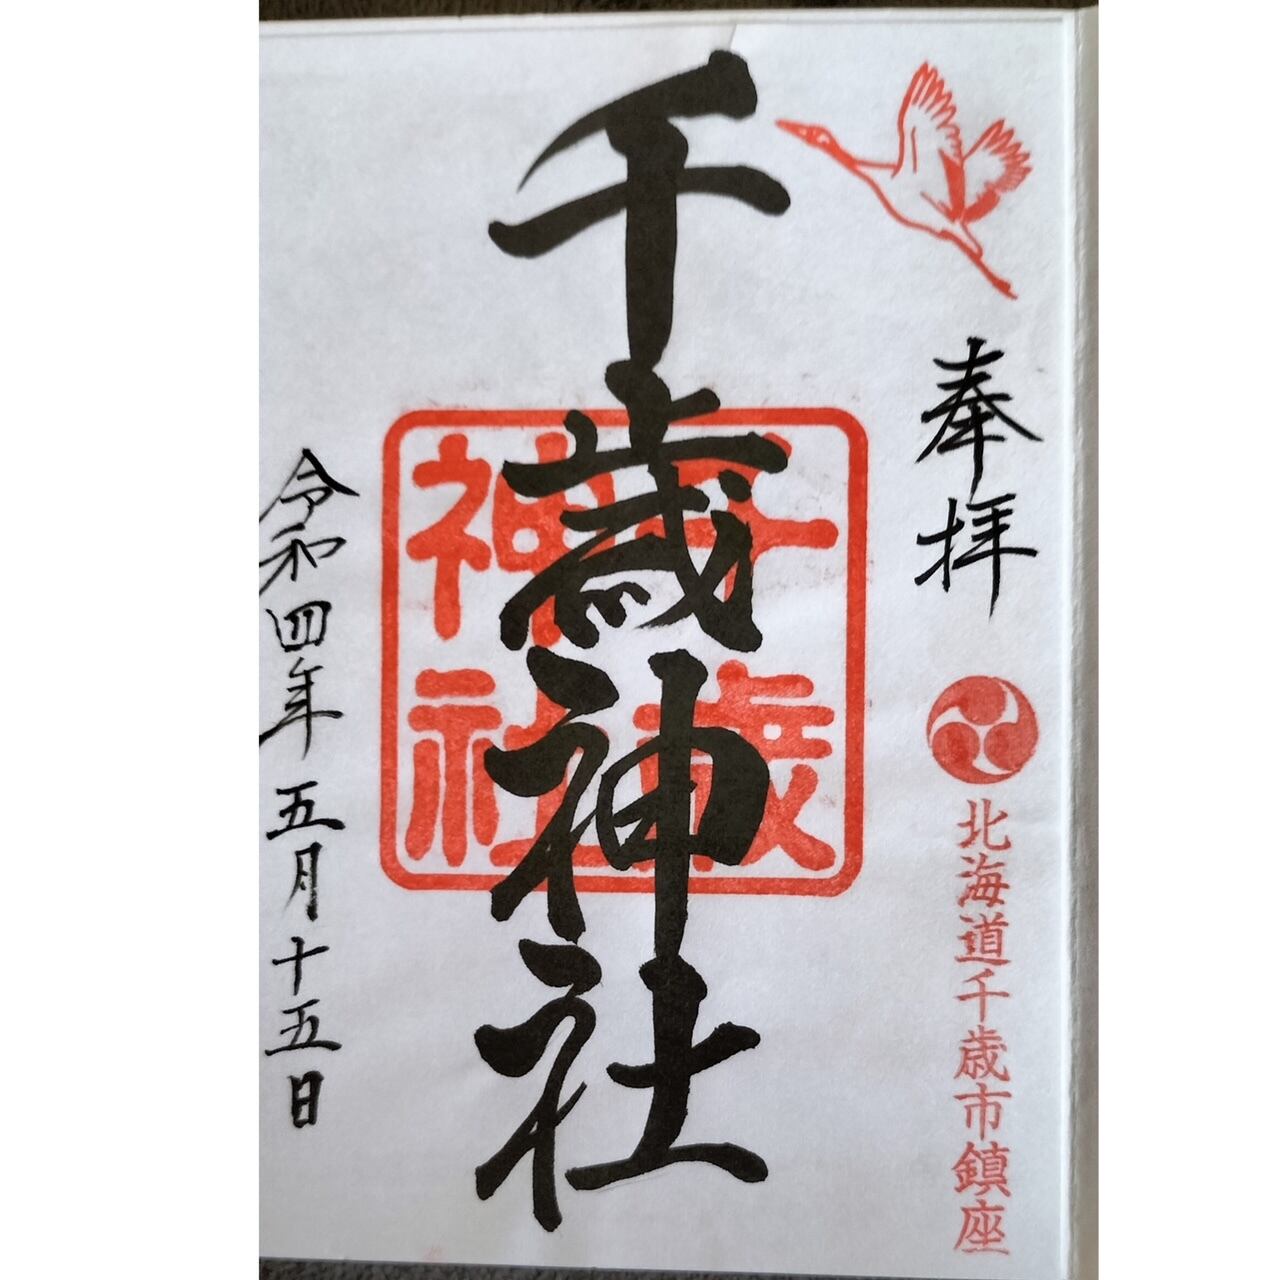 奉拝
北海道千歳市鎮座
千歳神社
千歳
神社
令和四年五月十五日